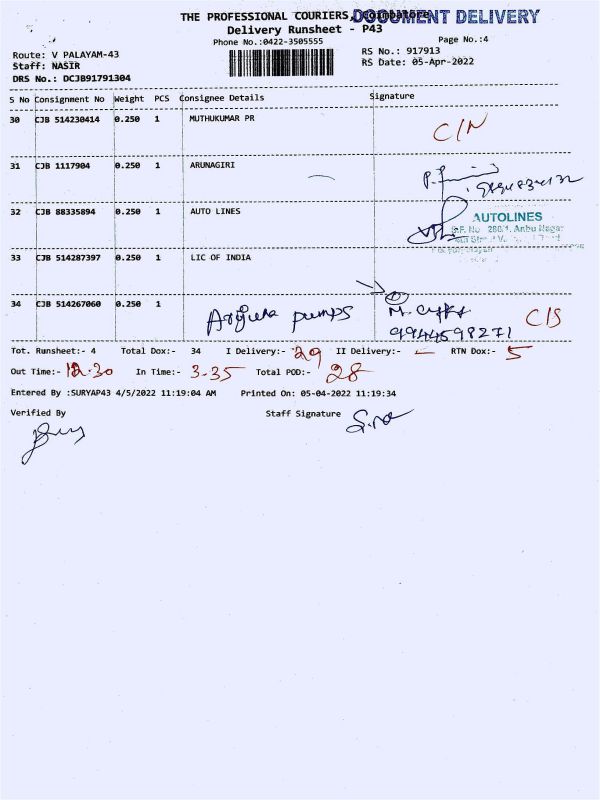 THE PROFESSIONAL COURIERS, Coimbatore
DOCUMENT DELIVERY
Delivery Runsheet - P43
Phone No.:0422-3505555
Page No.:4
Route: V PALAYAM-43
RS No.: 917913
Staff: NASIR
RS Date: 05-Apr-2022
DRS No.: DCJB91791304
S No Consignment No Weight PCS Consignee Details Signature
30 CJB 514230414 0.250 1 MUTHUKUMAR PR C/N
31 CJB 1117904 0.250 1 ARUNAGIRI
32 CJB 88335894 0.250 1 AUTO LINES
AUTOLINES
S.F. No 280/1, Anbu Nagar
33 CJB 514287397 0.250 1 LIC OF INDIA
34 CJB 514267060 0.250 1 pumps M. 9944598271 C/S
Tot. Runsheet:- 4 Total Dox:- 34 I Delivery:- 29 II Delivery:- - RTN Dox:- 5
Out Time:- 12.30 In Time:- 3.35 Total POD:- 28
Entered By :SURYAP43 4/5/2022 11:19:04 AM Printed On: 05-04-2022 11:19:34
Verified By Staff Signature